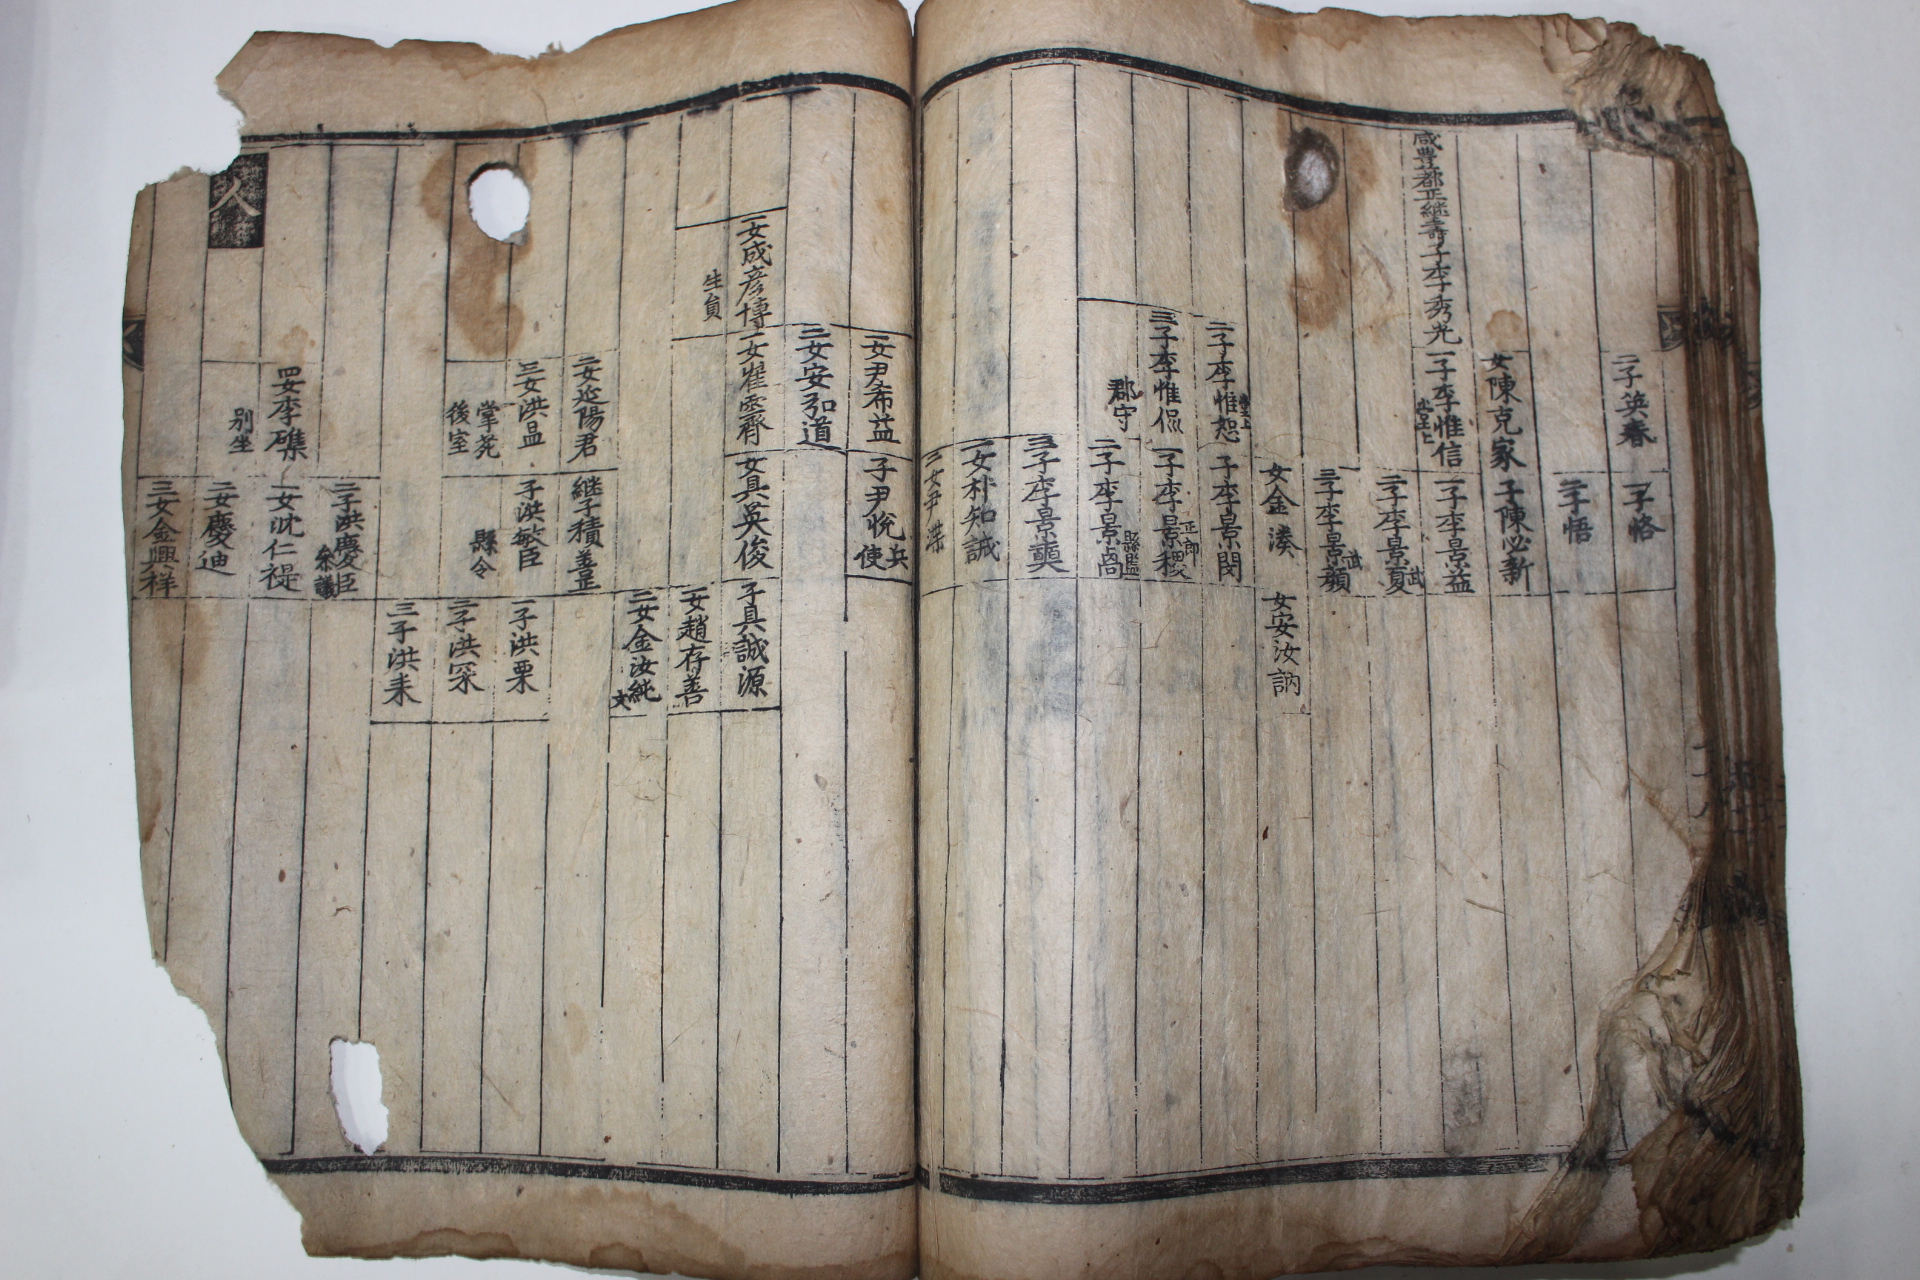 二子英春
一子恪
二子悟
女陳克家
子陳必新
咸豊都正継壽子李秀光
一子李惟信
一子李景益
二子李景夏
武
三子李景顔
武
女金湊
女安汝訥
二子李惟恕
子李景閔
三子李惟侃
郡守
一子李景稷
正郎
二子李景卨
縣監
三子李景奭
一女朴知誠
二女尹渫
一女尹希益
子尹悅
兵使
二女安弘道
一女成彦博
生員
一女崔霽
女具英俊
子具誠源
一女趙存善
二女金汝純
文
二女延陽君
継子積善正
三女洪昷
掌苑
後室
子洪敏臣
縣令
一子洪栗
二子洪罙
三子洪耒
二子洪慶臣
叅議
四女李礁
別坐
一女沈仁禔
二女慶迪
三女金興祥
人